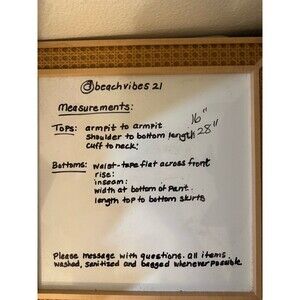 @beachvibes21
Measurements:
Tops: armpit to armpit 16"
shoulder to bottom length 28"
cuff to neck:
Bottoms: waist-tape flat across front
rise:
inseam:
width at bottom of pant.
length top to bottom skirts
Please message with questions. all items
washed, sanitized and bagged whenever possible